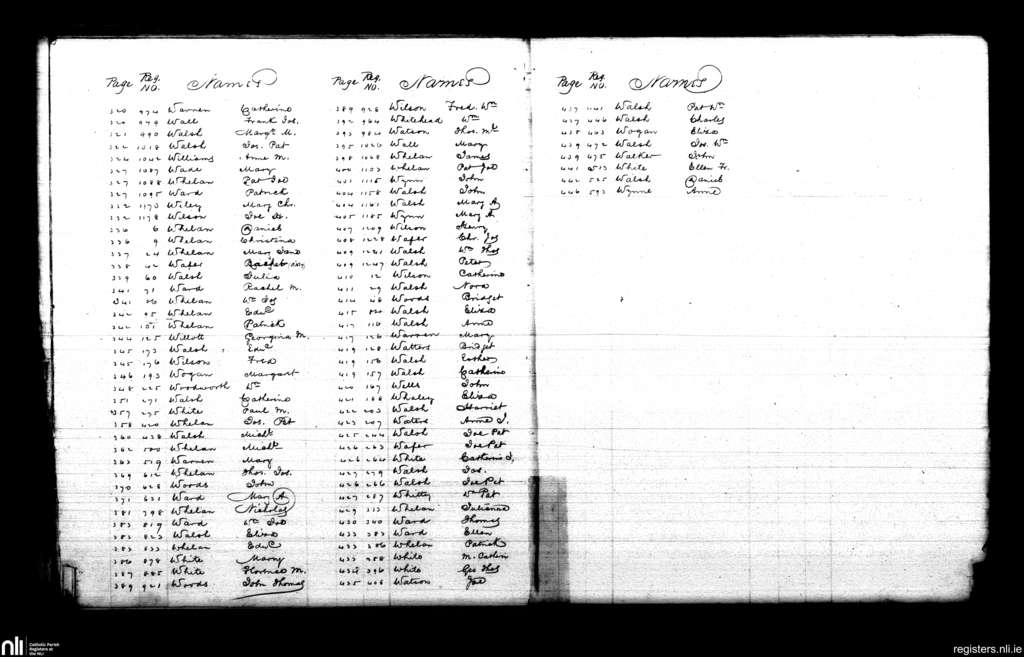 Page Reg. No. Names
320 974 Warren Catherine
320 979 Wall Frank Jos.
321 990 Walsh Margt. M.
322 1018 Walsh Jos. Pat
324 1042 Williams Anne M.
327 1087 Wade Mary
327 1088 Whelan Pat Jos
327 1095 Ward Patrick
332 1173 Wiley Mary Chr.
332 1178 Wilson
336 6 Whelan Daniel
336 9 Whelan Christina
337 24 Whelan Mary Jane
338 42 Wafer
339 60 Walsh Julia
341 71 Ward Rachel M.
341 Whelan Wm Jos
342 95 Whelan Edwd
342 101 Whelan Patrick
344 125 Willott Georgina M.
345 173 Walsh Edwd
345 176 Wilson Fred
346 193 Wogan Margaret
348 225 Woodworth Wm
351 271 Walsh Catherine
357 295 White Paul M.
358 420 Whelan Jos. Pat
360 438 Walsh Michl
362 500 Whelan Michl
363 519 Warren Mary
369 612 Whelan Thos. Jos.
370 628 Woods John
371 631 Ward Mary A.
381 798 Whelan Nicholas
383 819 Ward Wm Jos
383 823 Walsh Eliza
383 833 Whelan Edwd
386 878 White Mary
387 885 White Florence M.
389 921 Woods John Thomas
Page Reg. No. Names
389 928 Wilson Fred. Wm
392 964 Whitehead Wm
393 980 Watson Thos. Mk
395 1020 Wall Mary
398 1028 Whelan James
400 1103 Whelan Pat Jos
401 1115 Wynn John
404 1158 Walsh John
404 1161 Walsh Mary A.
405 1185 Wynn Mary A.
407 1209 Wilson Henry
408 1228 Wafer Chr. Jos
409 1241 Walsh Wm Thos
409 1247 Walsh Peter
410 12 Wilson Catherine
411 29 Walsh Nora
414 46 Woods Bridget
415 Walsh Eliza
417 110 Walsh Anne
417 126 Warren Mary
419 128 Watters Bridget
419 156 Walsh Esther
419 157 Walsh Catherine
420 167 Wells John
421 188 Whaley Eliza
422 203 Walsh Harriet
423 207 Waters Anne J.
425 244 Walsh Joe Pat
426 263 Wafer Joe Pat
426 264 White Catherine J.
427 279 Walsh Jas.
426 266 Walsh Joe Pat
427 287 Whitty Wm Pat
429 313 Whelan Julianna
430 340 Ward Thomas
433 383 Ward Ellen
433 386 Whelan Patrick
433 388 White
434 396 White Geo Thos
435 408 Watson Jas
Page Reg. No. Names
437 441 Walsh Pat Wm
437 446 Walsh Charles
438 463 Wogan Eliza
439 472 Walsh Jos. Wm
439 475 Walker John
441 513 White Ellen Fr.
442 525 Walsh Daniel
446 593 Wynne Anne
nli
Catholic Parish
Registers at
the NLI
registers.nli.ie